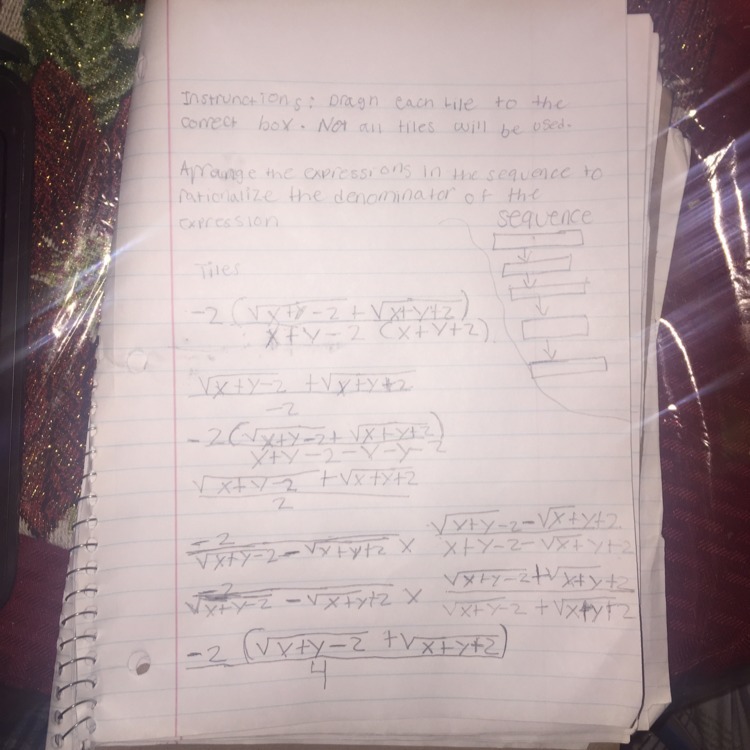 Instrunctions: Dragn each tile to the
correct box. Not all tiles will be used.
Aprange the expressions in the sequence to
rationalize the denominator of the
expression
sequence
Tiles
-2 (√x+y-2 + √x+y+2)
x+y-2 (x+y+2)
√x+y-2 + √x+y+2
-2
-2 (√x+y-2 + √x+y+2)
x+y-2-x-y-2
√x+y-2 + √x+y+2
2
-2 √x+y-2 - √x+y+2
√x+y-2 - √x+y+2 × x+y-2 - √x+y+2
2 √x+y-2 + √x+y+2
√x+y-2 - √x+y+2 × √x+y-2 + √x+y+2
-2 (√x+y-2 + √x+y+2)
4